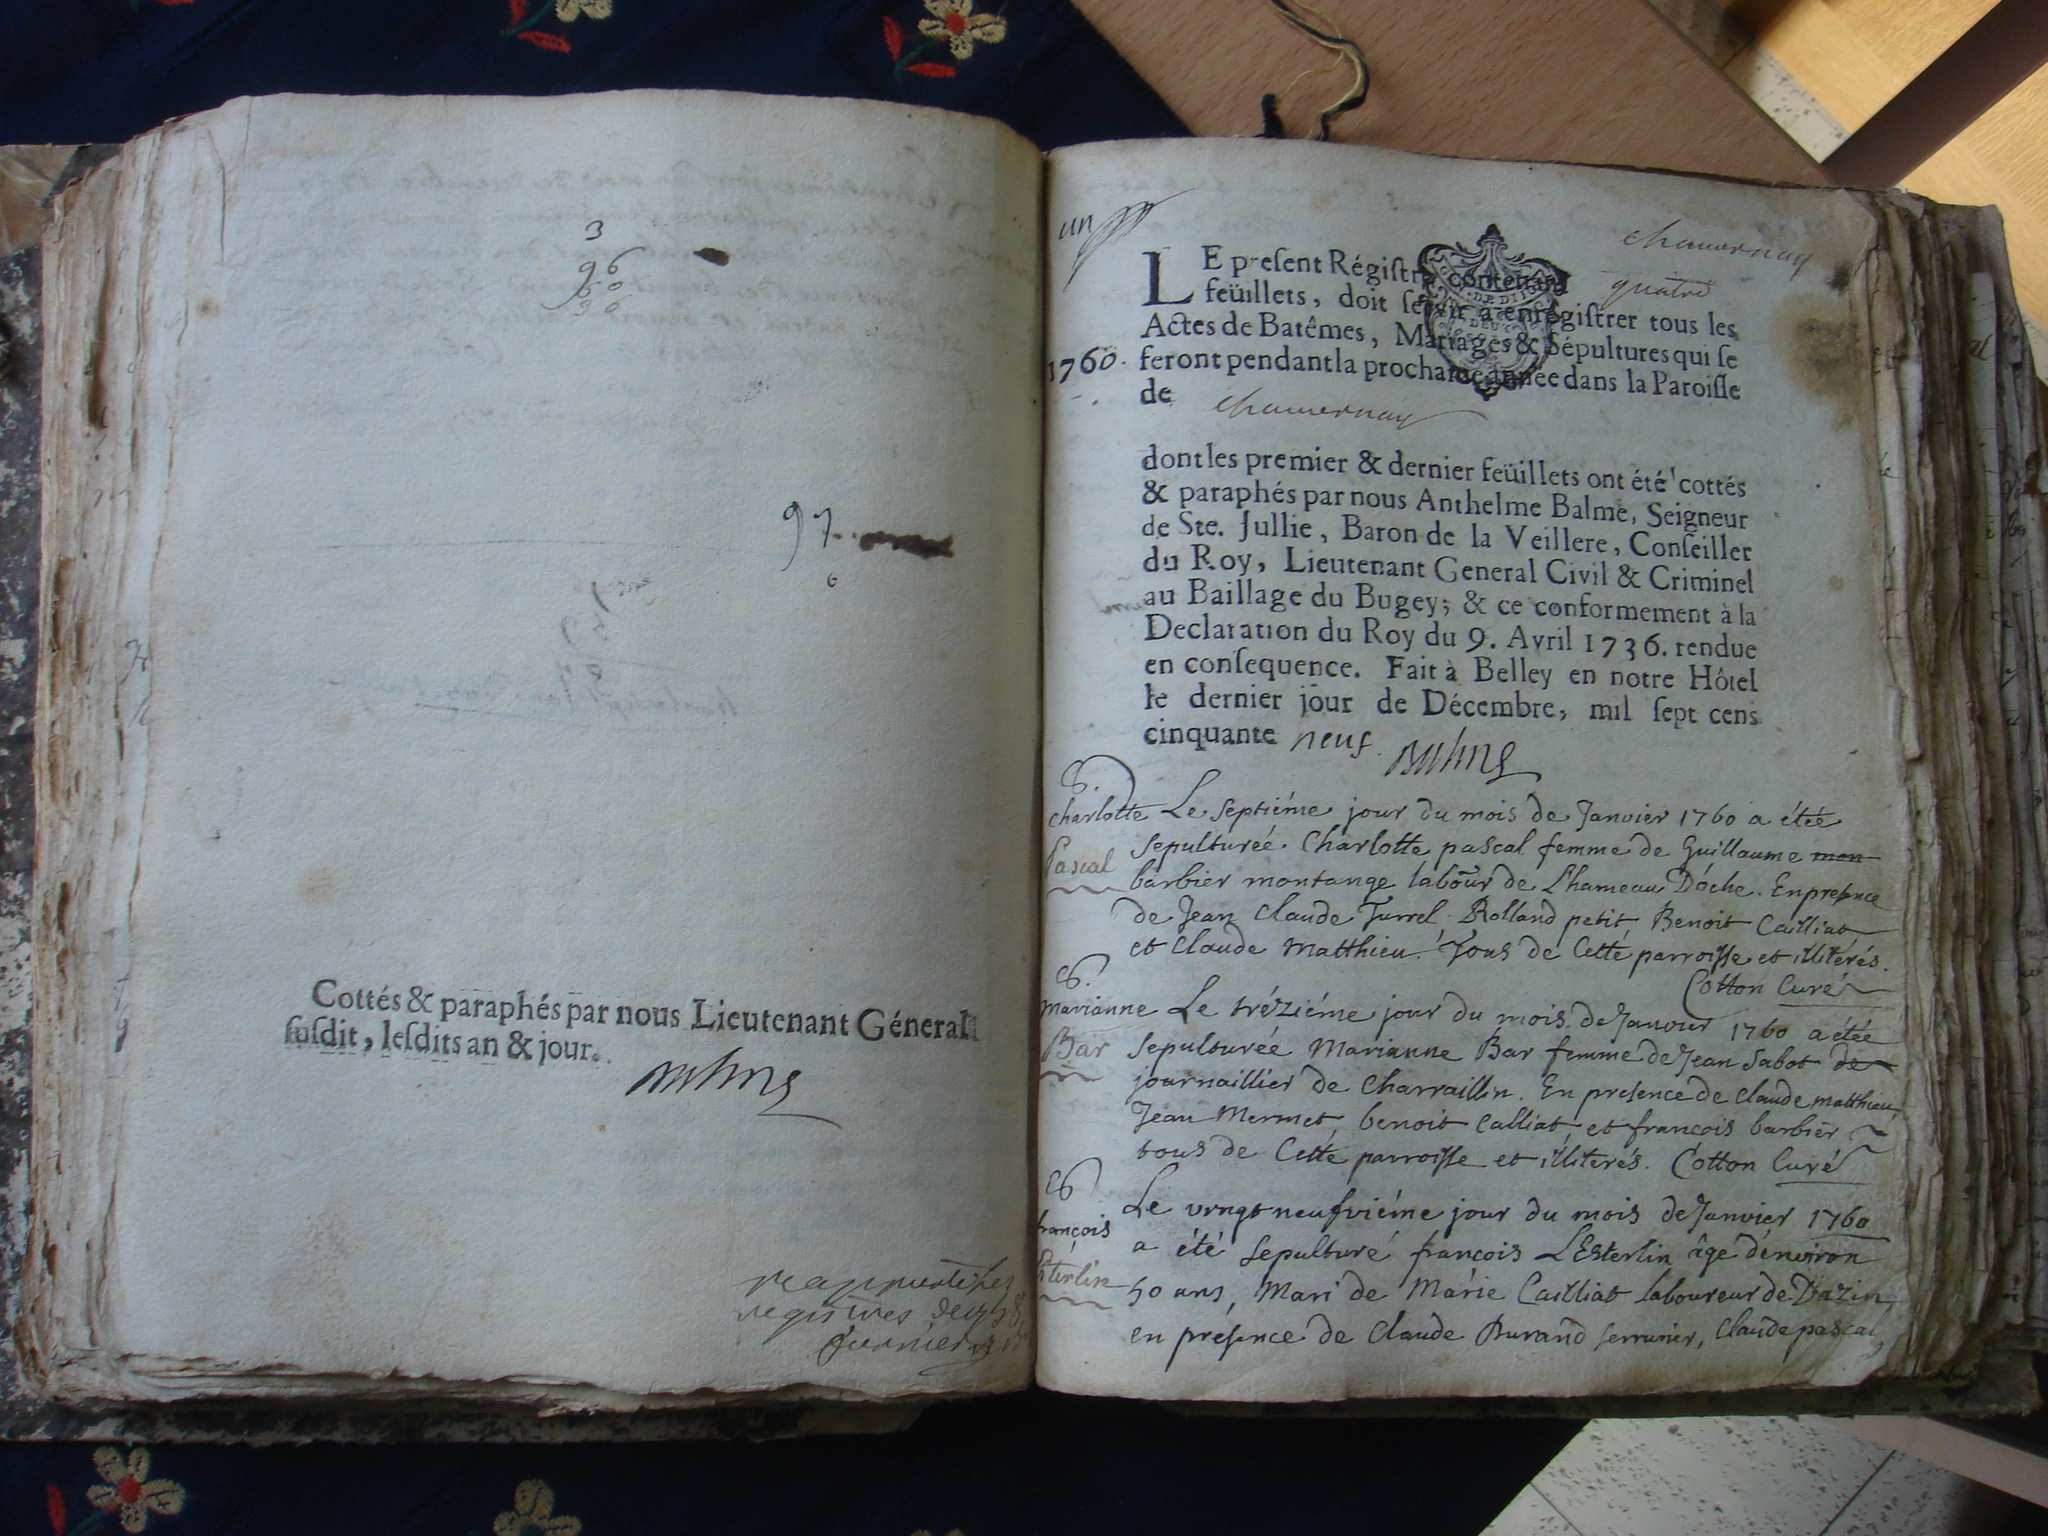 3
96
97
6
Cottés & paraphés par nous Lieutenant Géneral
susdit, lesdits an & jour.
registres de
un
chavernay
quatre
LE present Régistre, contenant
feüillets, doit servir à enregistrer tous les
Actes de Batêmes, Mariages & Sépultures qui se
1760. feront pendant la prochaine année dans la Paroisse
de chavernay
dont les premier & dernier feüillets ont été cottés
& paraphés par nous Anthelme Balme, Seigneur
de Ste. Jullie, Baron de la Veillere, Conseiller
du Roy, Lieutenant General Civil & Criminel
au Baillage du Bugey; & ce conformement à la
Declaration du Roy du 9. Avril 1736. rendue
en consequence. Fait à Belley en notre Hôtel
le dernier jour de Décembre, mil sept cens
cinquante neuf. Balme
charlotte Le septiéme jour du mois de Janvier 1760 a étée
sepulturée. Charlotte pascal femme de Guillaume mon
Pascal barbier montange labour de Lhameau Doche. En presence
de Jean Claude Turrel, Rolland petit, Benoit Cailliat
et Claude Matthieu. Tous de Cette parroisse et illiterés.
Cotton Curé
Marianne Le tréziéme jour du mois de Janvier 1760 a étée
Bar sepulturée Marianne Bar femme de Jean Sabot de
journaillier de Charraillin. En presence de Claude matthieu,
Jean Mermet, benoit Calliat, et françois barbier
tous de Cette parroisse et illiterés. Cotton Curé
Le vingt neufviéme jour du mois de Janvier 1760
françois a été sepulturé françois L'Esterlin âgé dénviron
50 ans, Mari de Marie Cailliat laboureur de Bazin
en présence de Claude Durand serrurier, Claude pascal,